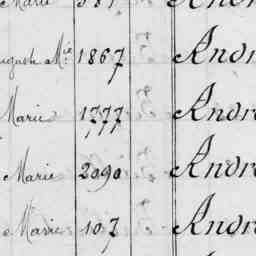 Marie 387 Andr
August Mie 1867 Andr
Marie 1777 Andr
Marie 2090 Andr
Marie 107 Andr